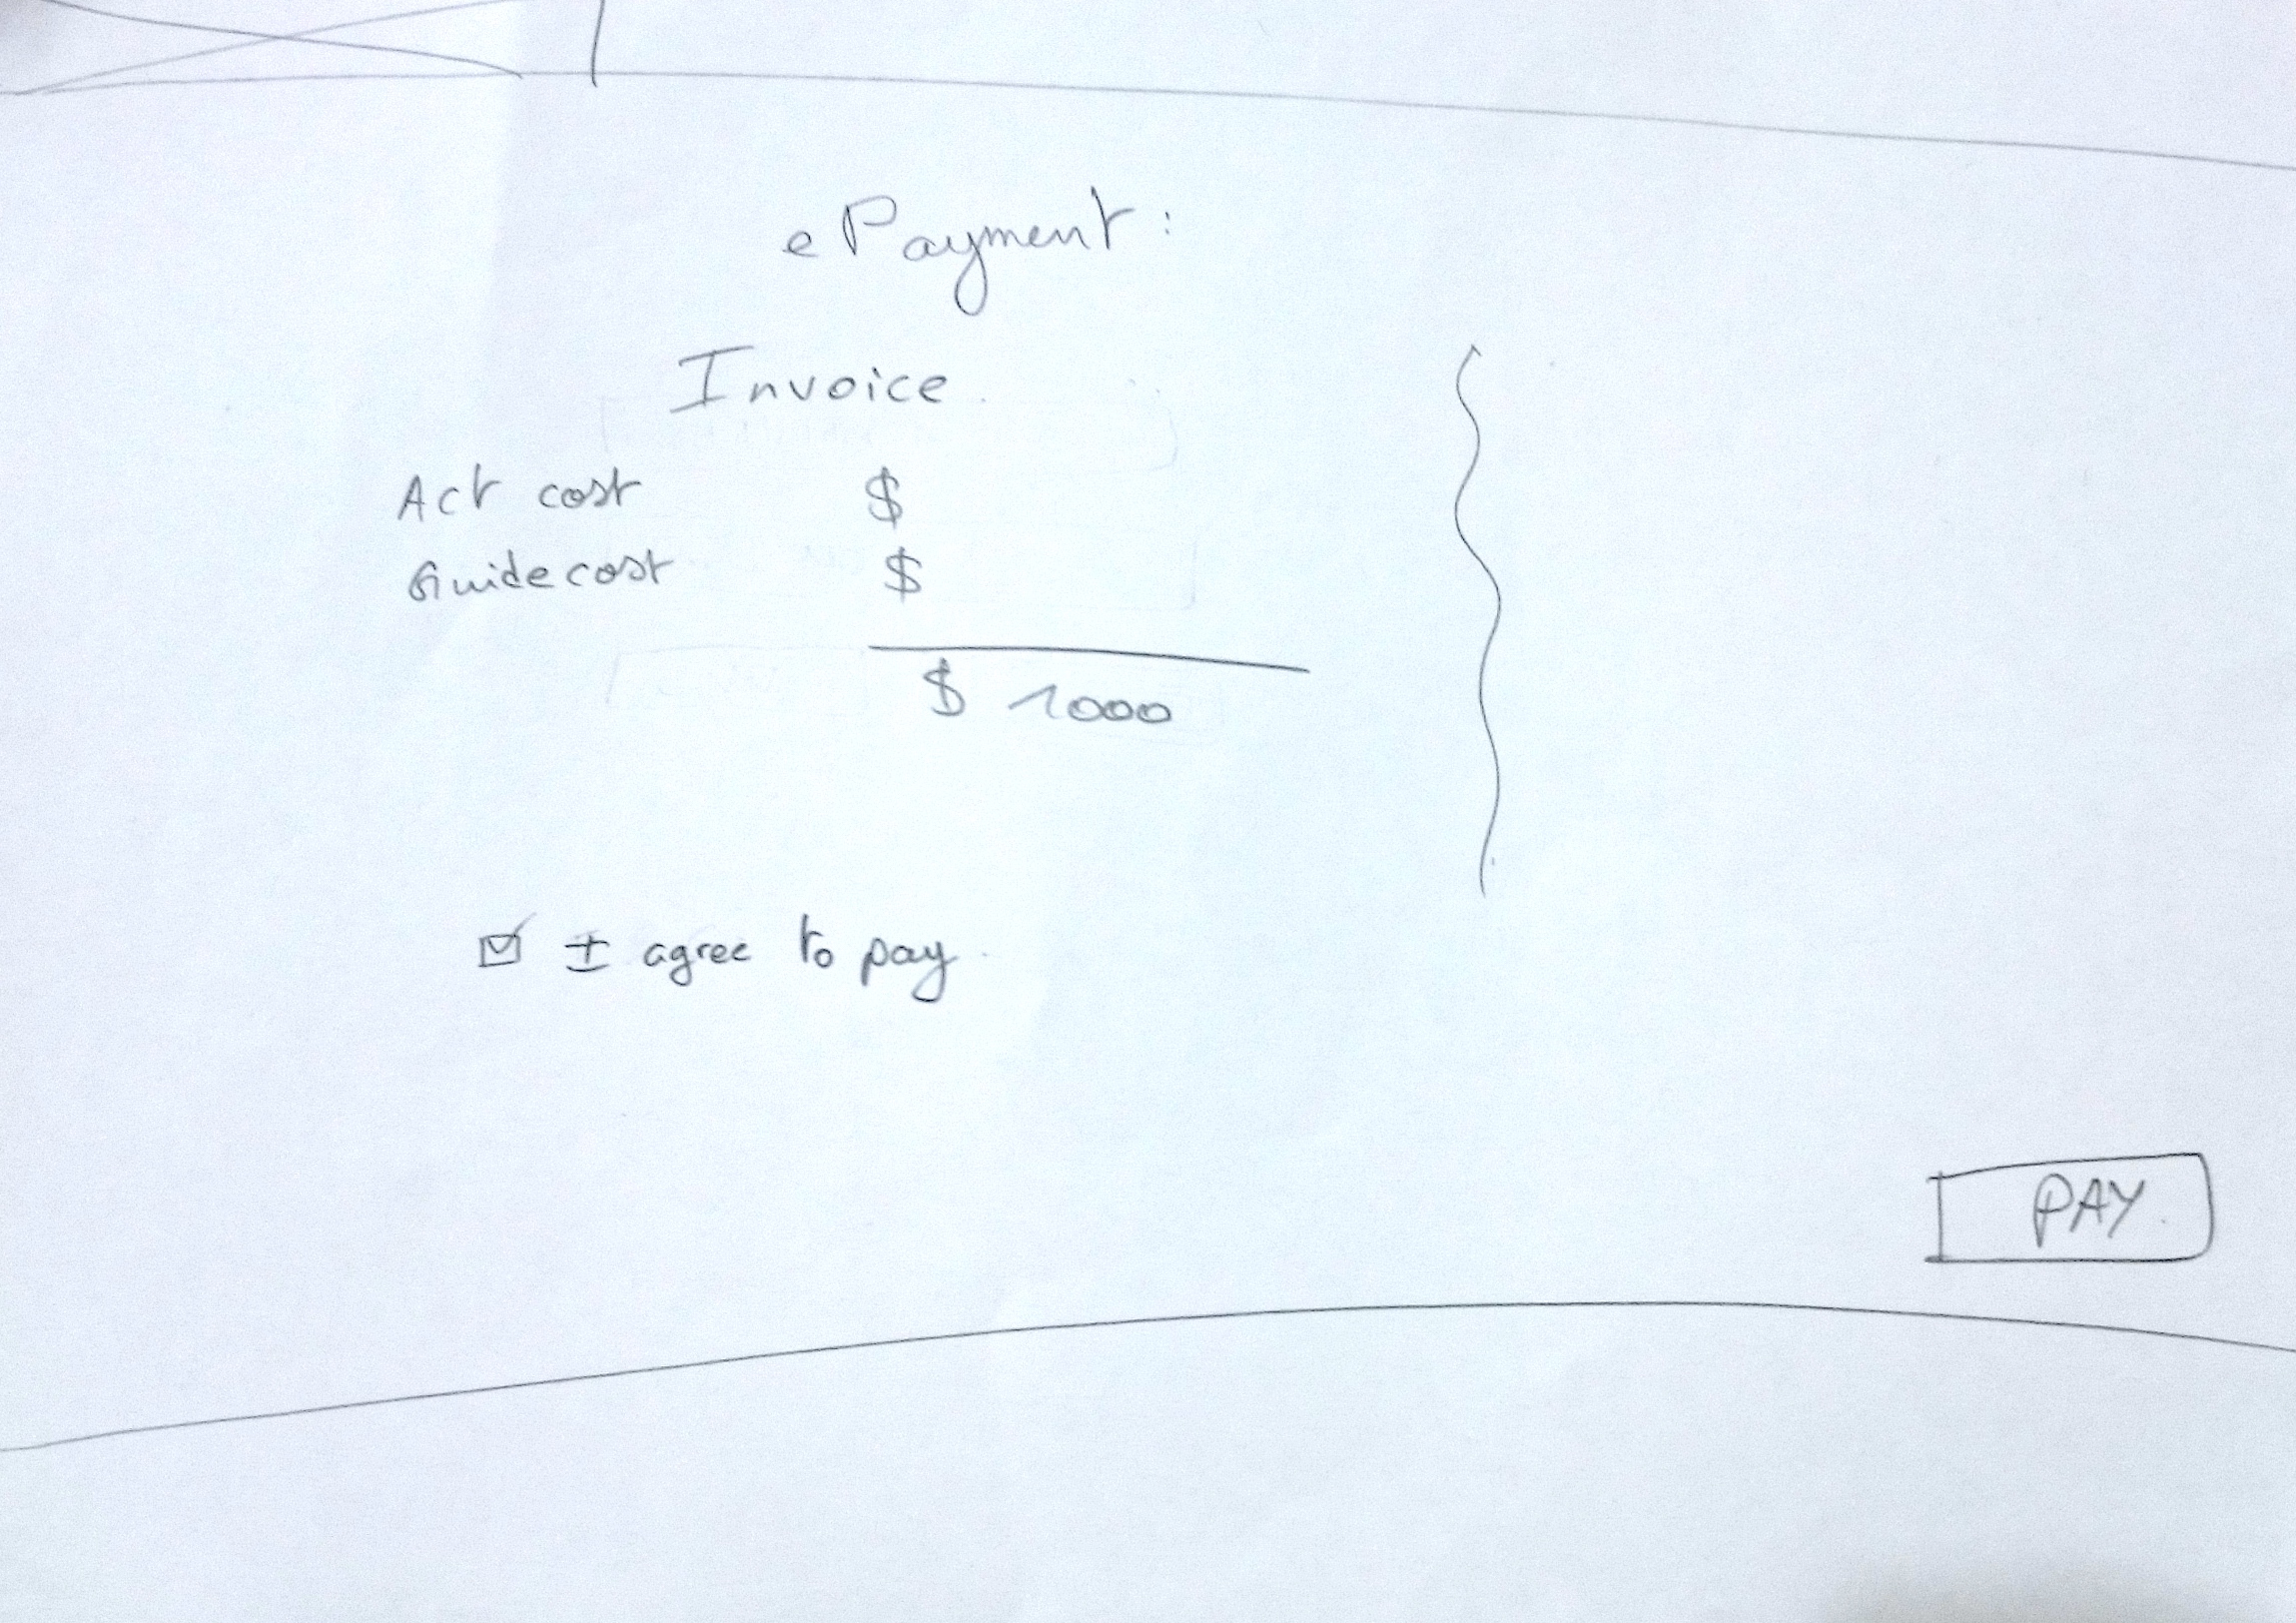 ePayment:
Invoice
Act cost $
Guide cost $
$ 1000
I agree to pay
PAY